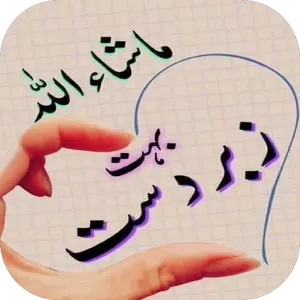 ماشاء اللہ
بہت
زبردست